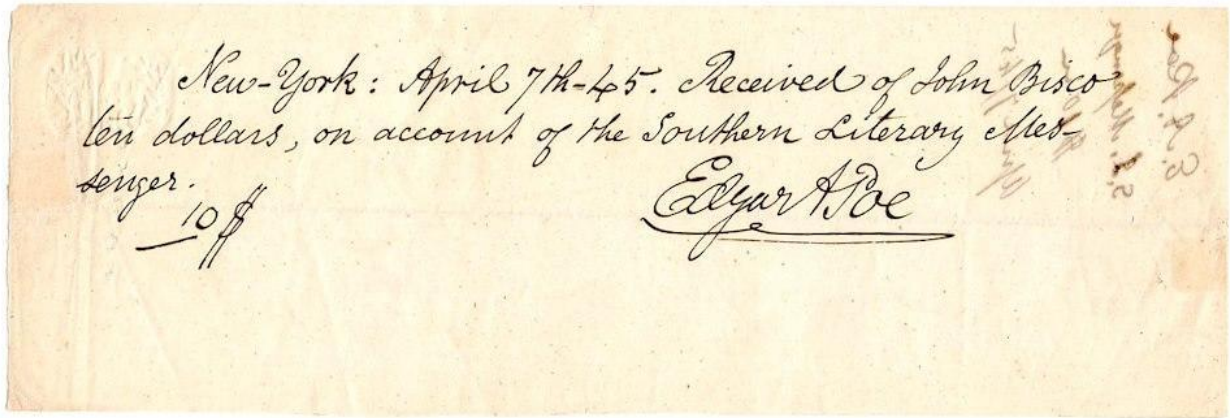 New-York: April 7th-45. Received of John Bisco
ten dollars, on account of the Southern Literary Mes-
senger.
10 $
Edgar A Poe